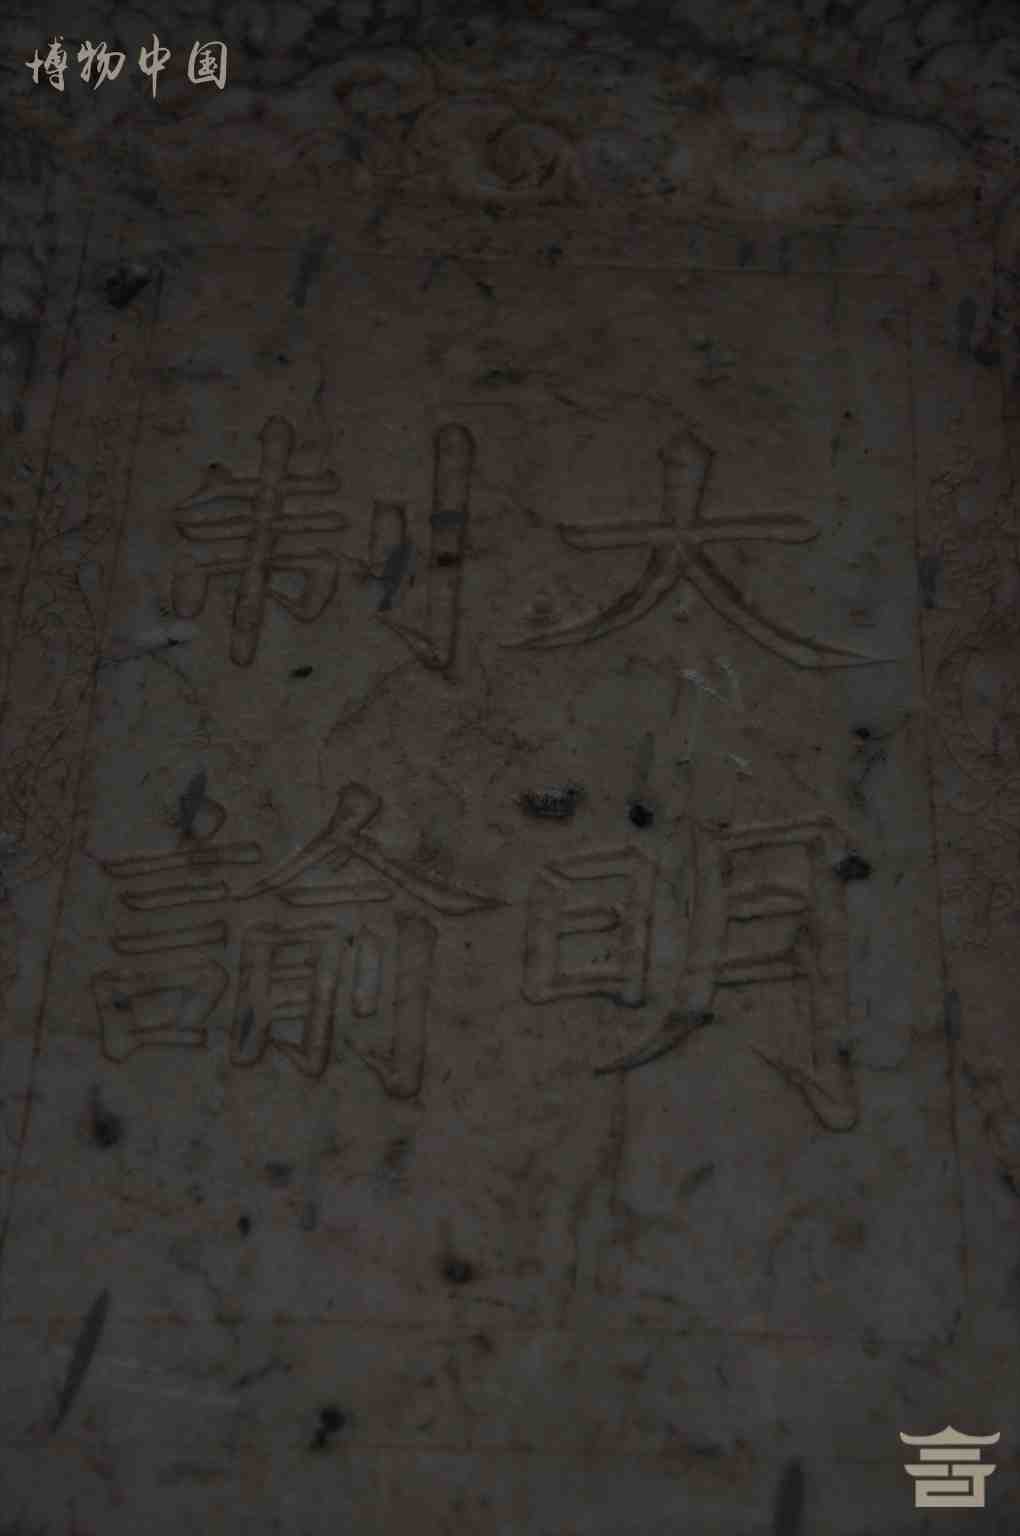 博物中国
大明
制諭